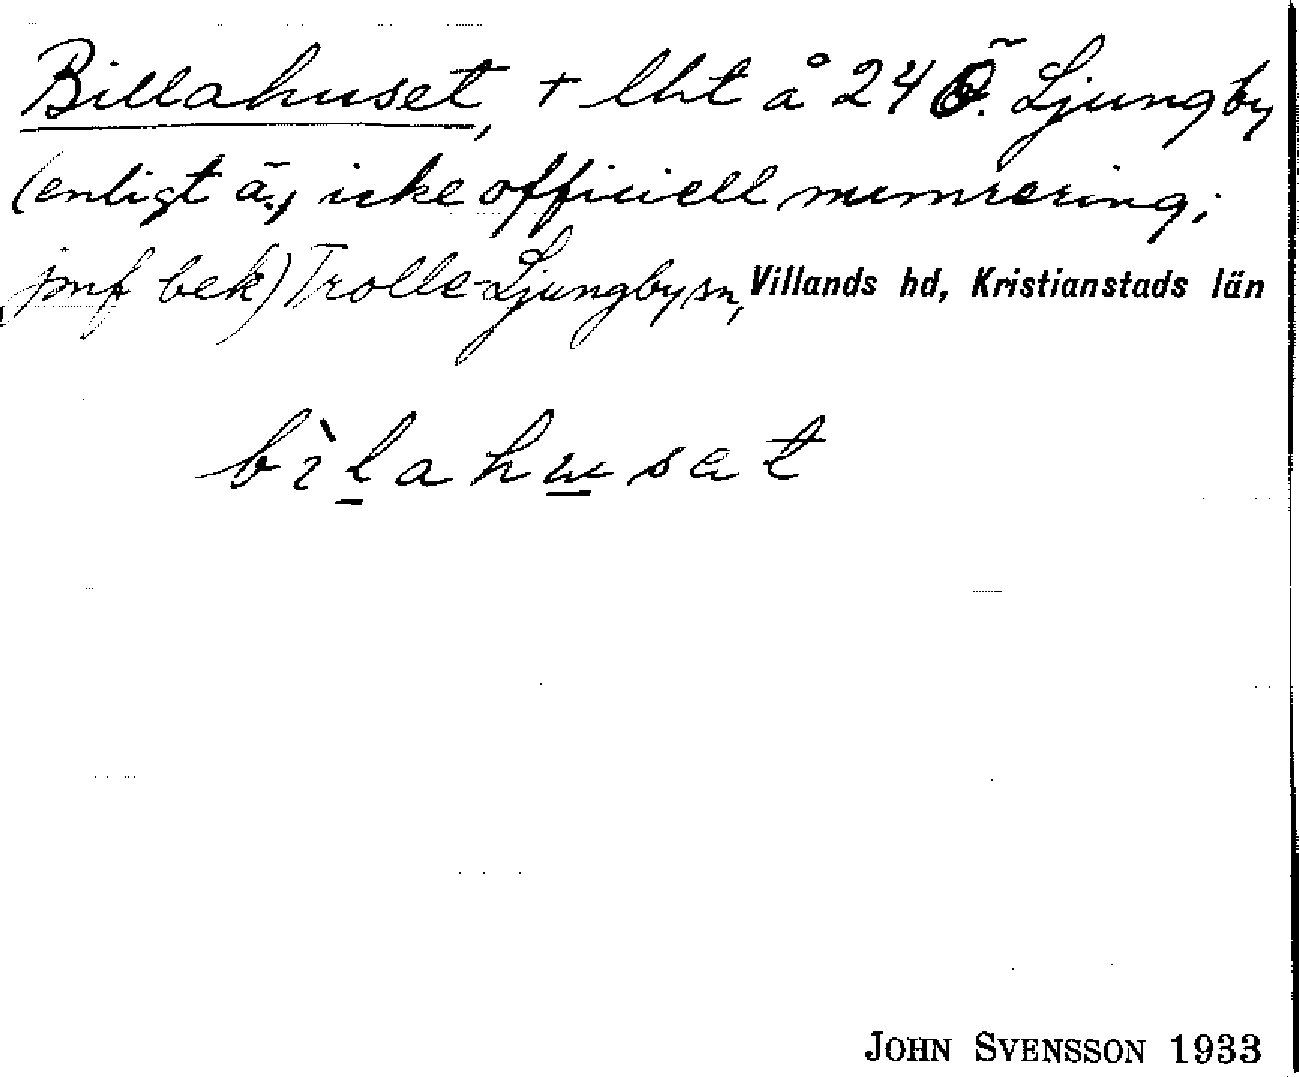 Billahuset, † lht å 24 Ö. Ljungby
(enligt ä., icke officiell numrering;
jmf bek) Trolle-Ljungby sn, Villands hd, Kristianstads län
bìlahusat
JOHN SVENSSON 1933